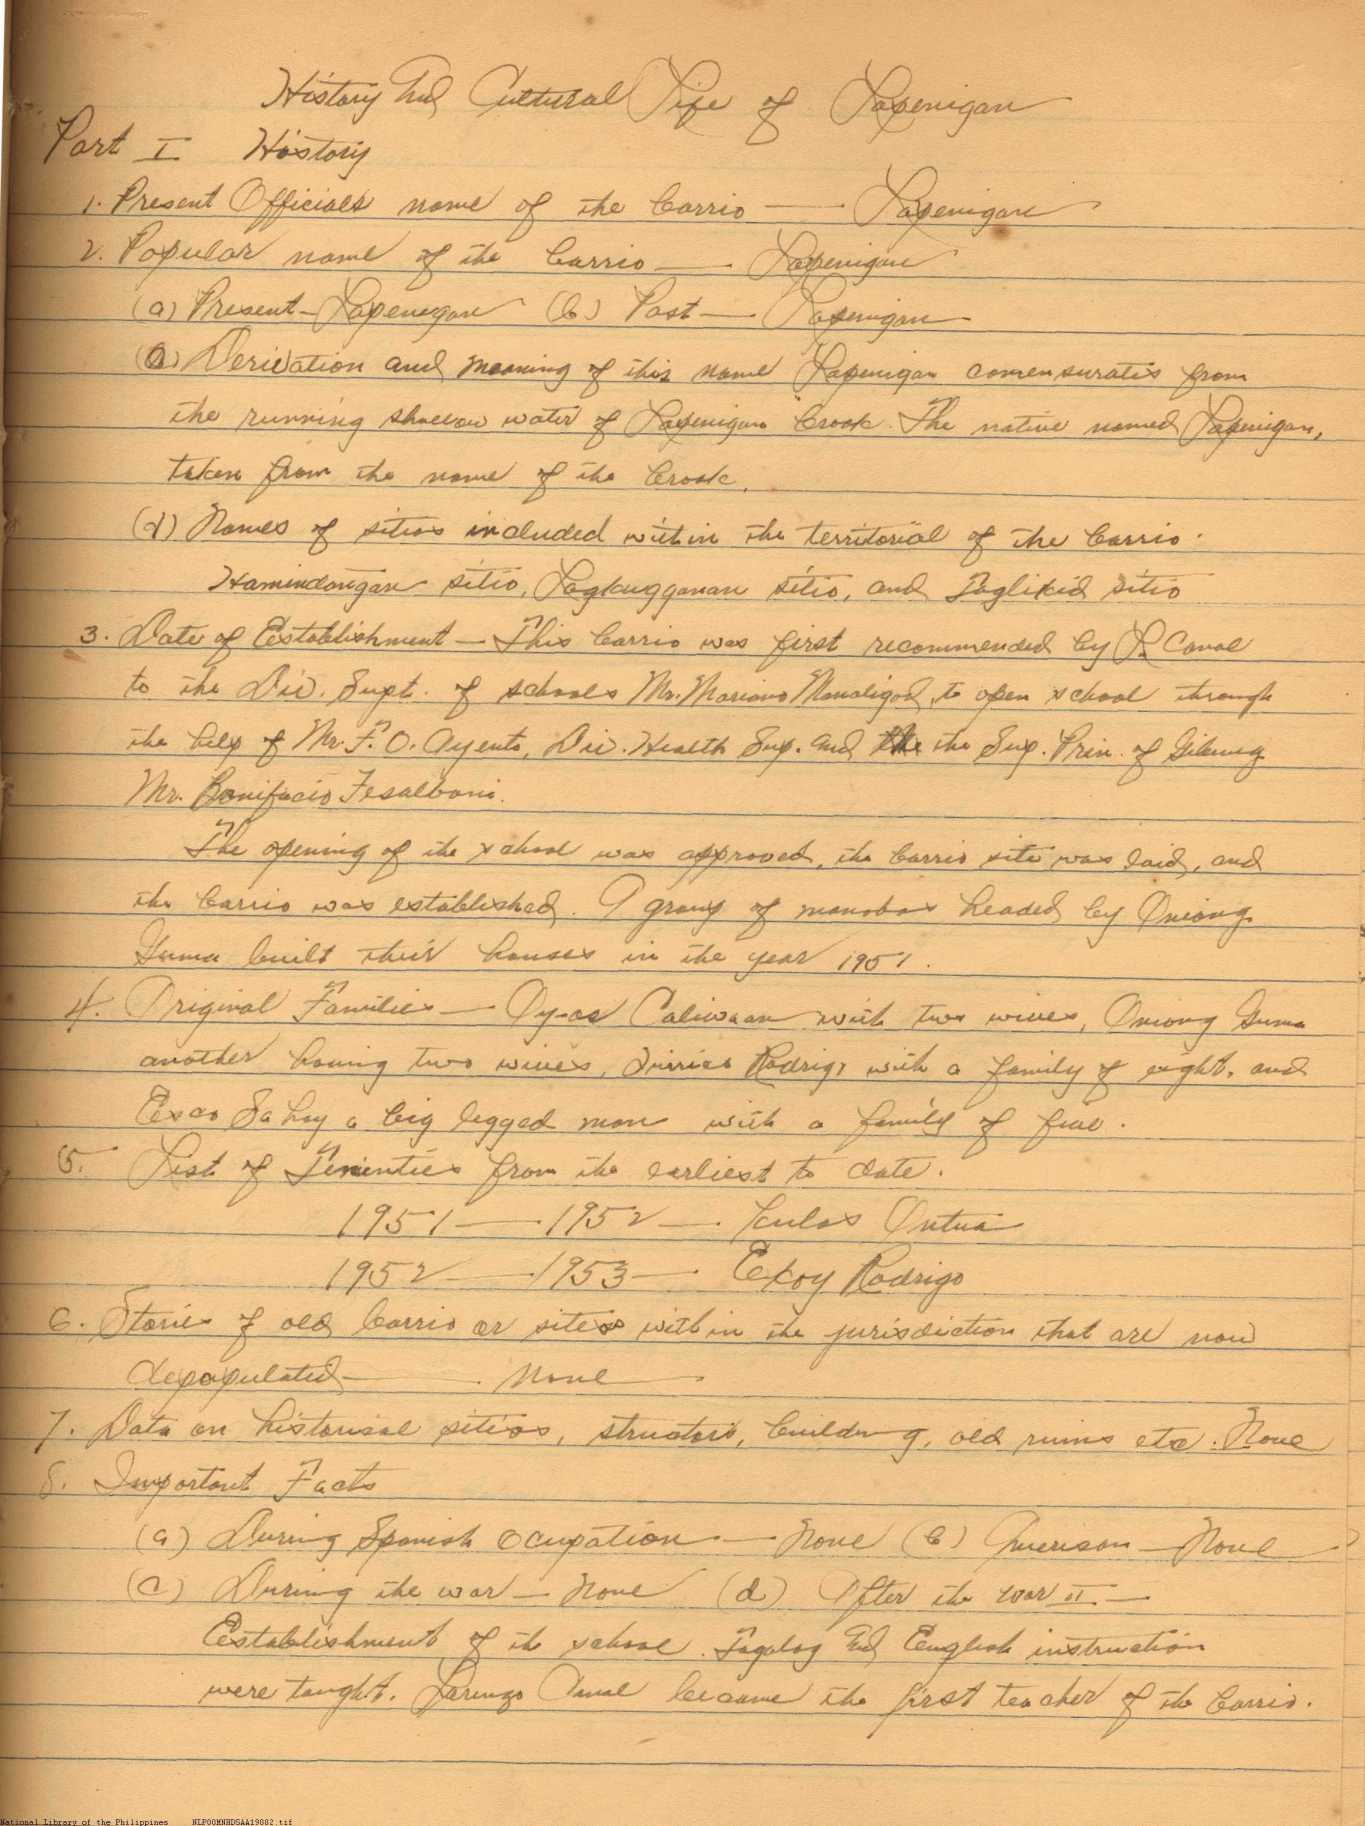 History And Cultural Life of Lapenigan
Part I History
1. Present Officials name of the barrio — Lapenigan
2. Popular name of the barrio — Lapenigan
(a) Present — Lapenigan (b) Past — Lapenigan
(c) Derivation and meaning of this name Lapenigan comensurates from
the running shallow water of Lapenigan Crook. The native named Lapenigan,
taken from the name of the Crook.
(d) Names of sitios included within the territorial of the barrio.
sitio, sitio, and Taglikid sitio
3. Date of Establishment — This barrio was first recommended by L. Canoe
to the Div. Supt. of schools Mr. Mariano Manaligod, to open school through
the help of Mr. F. O. Ayento, Div. Health Sup. and the Sup. Prin. of
Mr. Bonifacio
The opening of the school was approved, the barrio site was laid, and
the barrio was established. A group of manobos headed by Oniong
Guma built their houses in the year 1951.
4. Original Families — with two wives, Oniong Guma
another having two wives, Rodrigo with a family of eight, and
a big legged man with a family of five.
5. List of Tenientes from the earliest to date.
1951 — 1952 —
1952 — 1953 — Ekoy Rodrigo
6. Stories of old barrio or sites within the jurisdiction that are now
depopulated — None
7. Data on historical sitios, structors, building, old ruins etc. None
8. Important Facts
(a) During Spanish Ocupation — None (b) American — None
(c) During the war — None (d) After the war II —
Establishment of the school. Tagalog and English instruction
were taught. Lorenzo became the first teacher of the barrio.
National Library of the Philippines NLP00MNHDSAA19082.tif